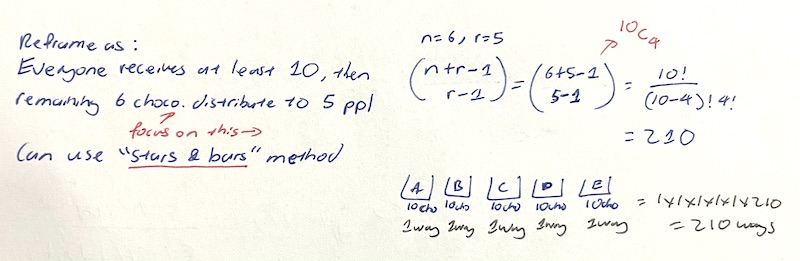 Reframe as :
Everyone receives at least 10, then
remaining 6 choco. distribute to 5 ppl
focus on this →
Can use "stars & bars" method
n=6, r=5
10C4
(n+r-1 r-1) = (6+5-1 5-1) = 10! / (10-4)! 4!
= 210
A B C D E
10cho 10cho 10cho 10cho 10cho
1way 1way 1way 1way 1way
= 1x1x1x1x1x210
= 210 ways